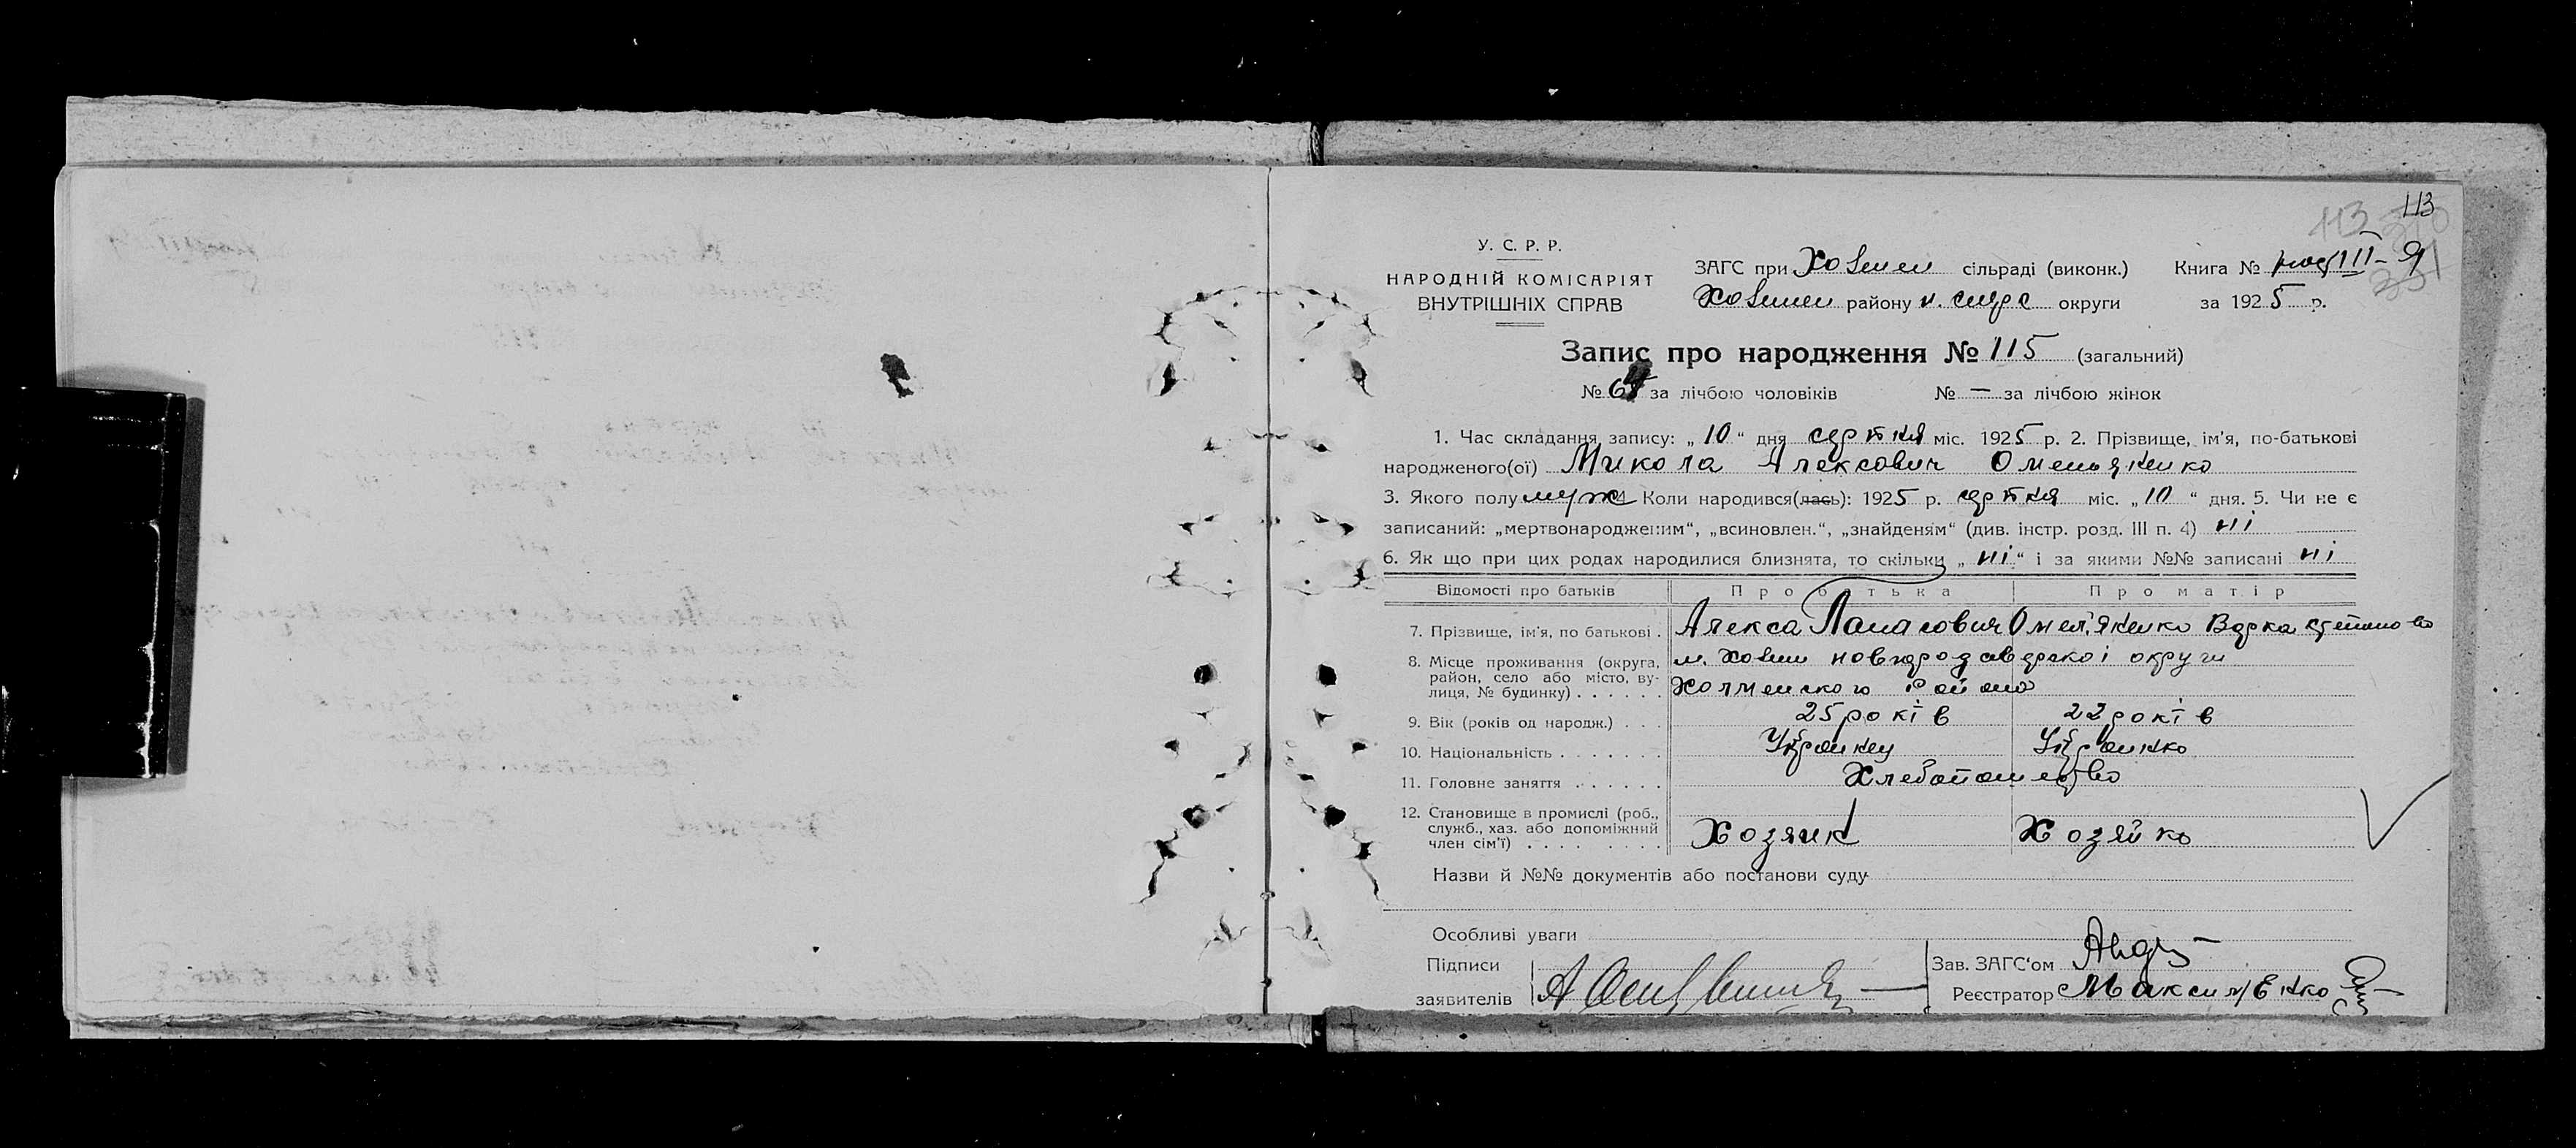 113
113
У. С. Р. Р.
НАРОДНІЙ КОМІСАРІЯТ
ВНУТРІШНІХ СПРАВ
ЗАГС при Холмен сільраді (виконк.) Книга №
Холмен району округи за 1925 р.
Запис про народження № 115 (загальний)
№ за лічбою чоловіків № — за лічбою жінок
1. Час складання запису: „10“ дня серпня міс. 1925 р. 2. Прізвище, ім'я, по-батькові
народженого(ої) Микола Алексович Омельяненко
3. Якого полу муж 4. Коли народився(лась): 1925 р. серпня міс. „10“ дня. 5. Чи не є
записаний: „мертвонародженим“, „всиновлен.“, „знайденям“ (див. інстр. розд. III п. 4) ні
6. Як що при цих родах народилися близнята, то скільки „ні“ і за якими №№ записані ні
Відомості про батьків Про батька Про матір
7. Прізвище, ім'я, по батькові . Алекса Панасович Омел'яненко Варка
8. Місце проживання (округа, м. Холми новгородсіверської округи
район, село або місто, ву-
лиця, № будинку) . . . . . . Холменского района
9. Вік (років од народж.) . . . 25 років 22 років
10. Національність . . . . . . . Українец Українка
11. Головне заняття . . . . . . Хлебопашество
12. Становище в промислі (роб.,
служб., хаз. або допоміжний
член сім'ї) . . . . . . . . . Хозяин Хозяйка
Назви й №№ документів або постанови суду
Особливі уваги
Підписи Зав. ЗАГС'ом
заявителів Реєстратор Максименко